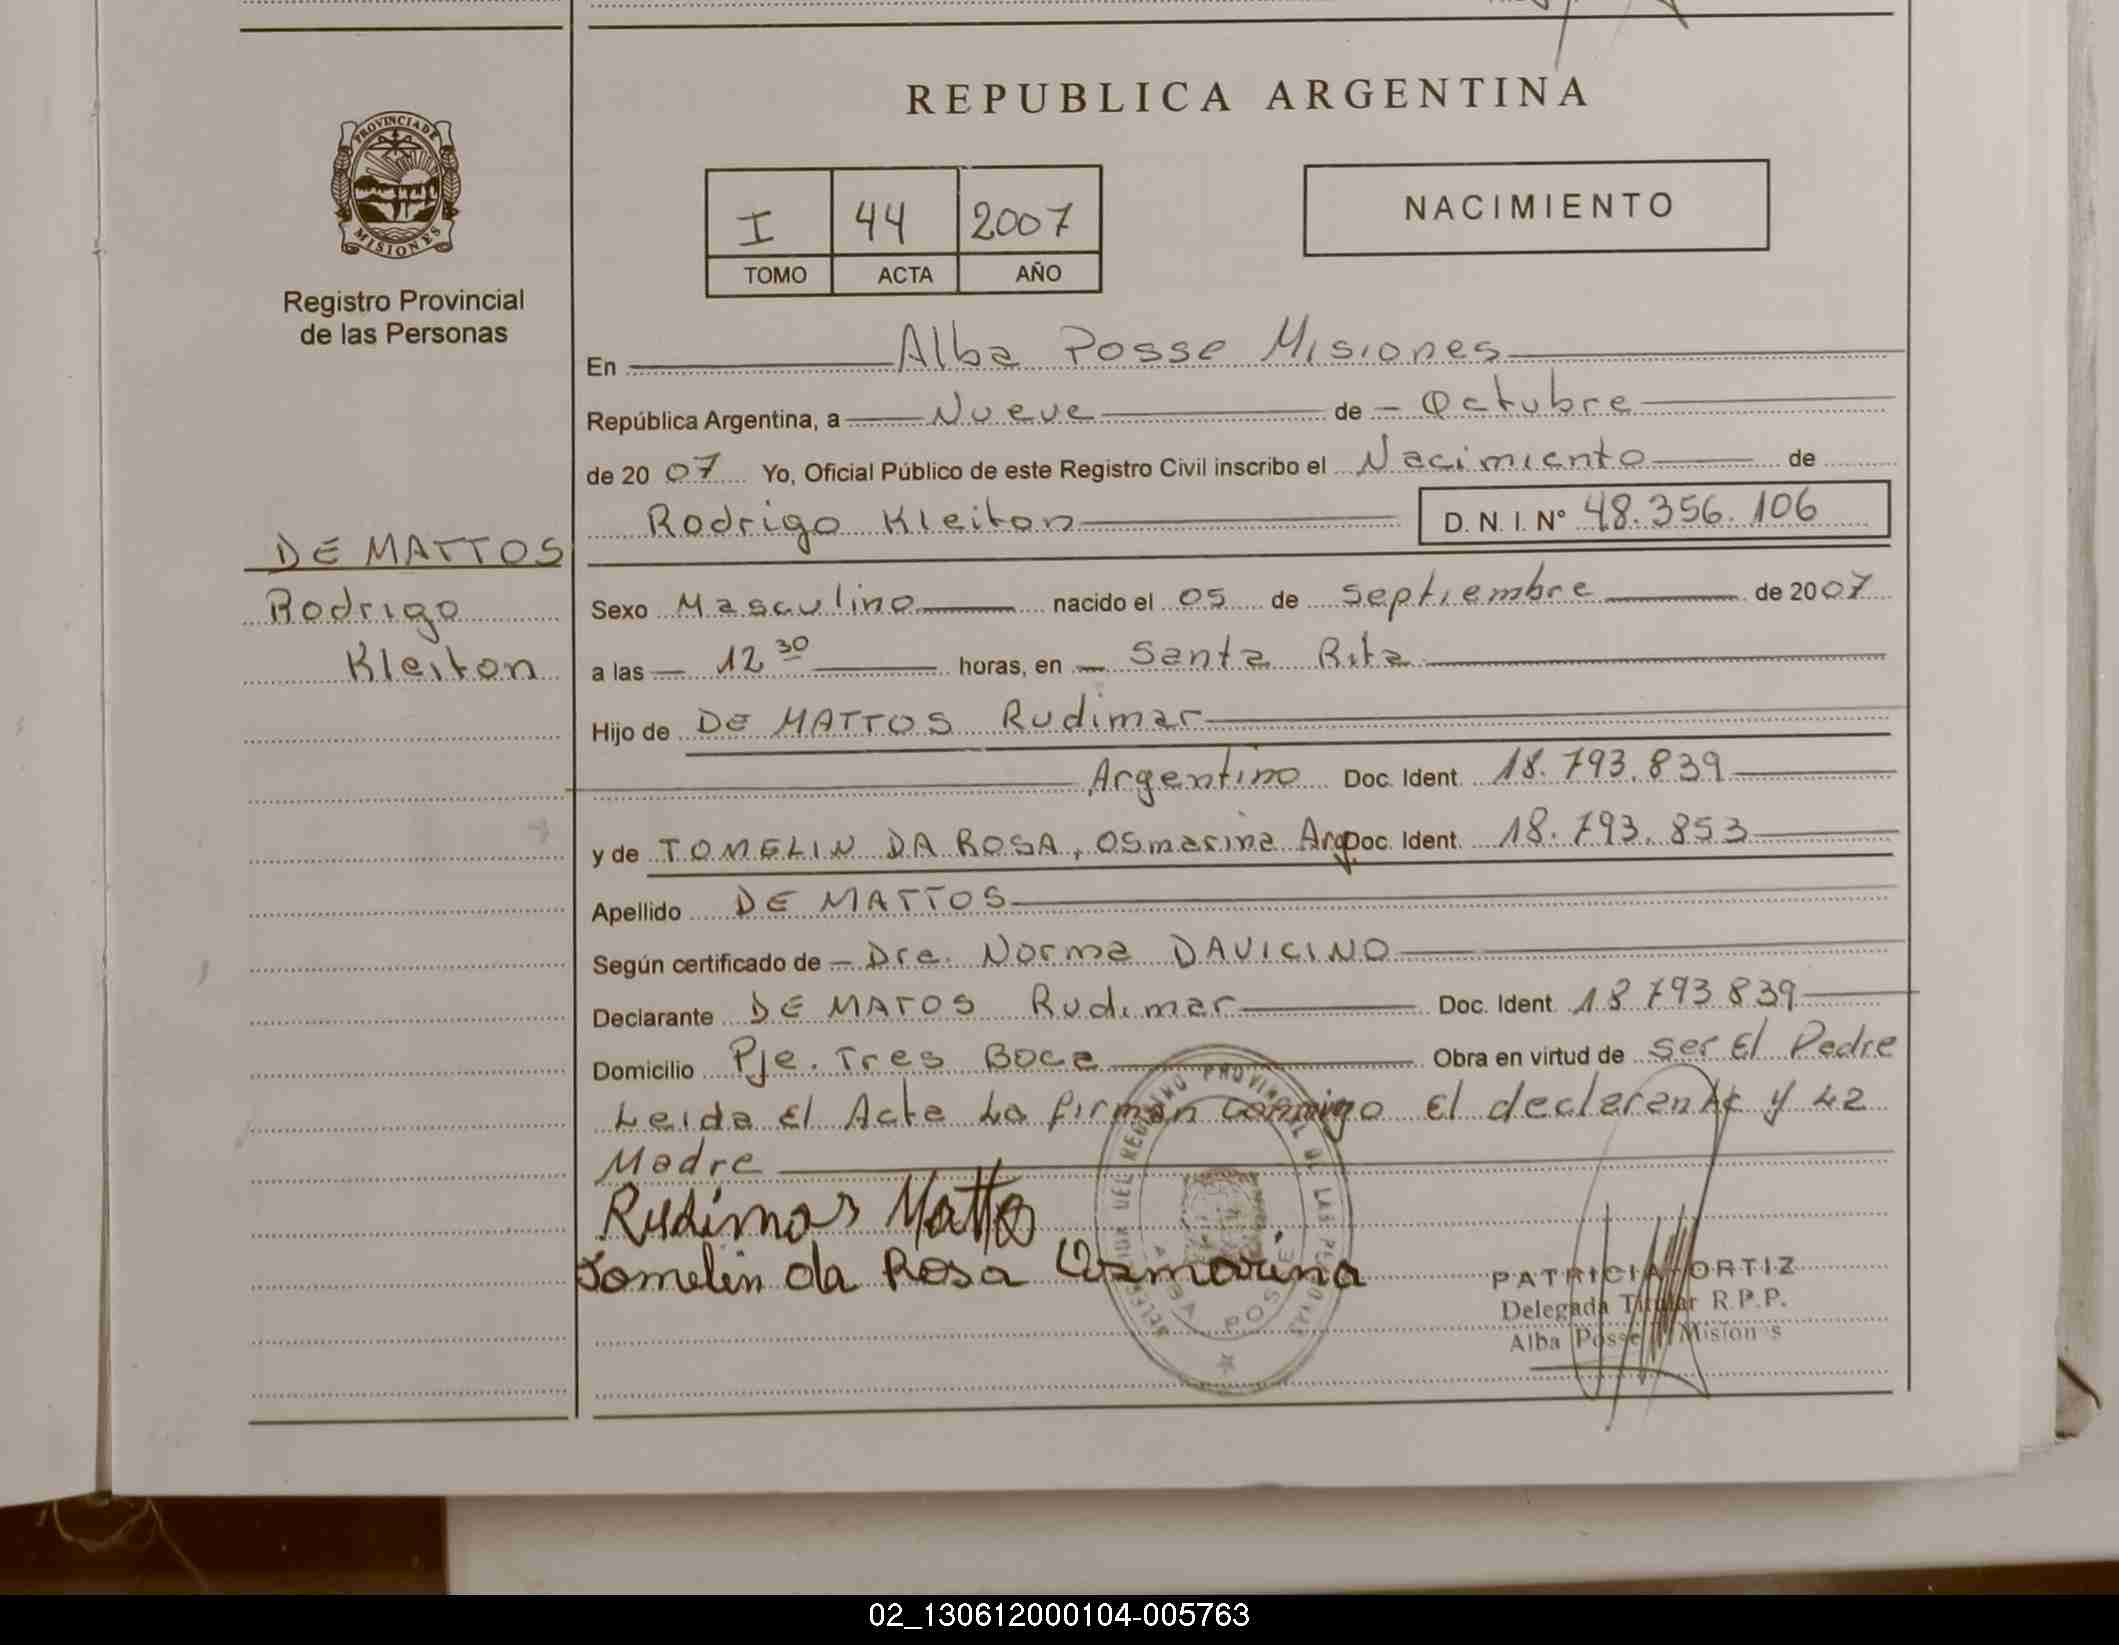 REPUBLICA ARGENTINA
PROVINCIA DE
MISIONES
Registro Provincial
de las Personas
I 44 2007
TOMO ACTA AÑO
NACIMIENTO
En Alba Posse Misiones
República Argentina, a Nueve de Octubre
de 20 07 Yo, Oficial Público de este Registro Civil inscribo el Nacimiento de
Rodrigo Kleiton D. N. I. Nº 48.356.106
DE MATTOS
Rodrigo
Kleiton
Sexo Masculino nacido el 05 de septiembre de 2007
a las 12 30 horas, en Santa Rita
Hijo de DE MATTOS Rudimar
Argentino Doc. Ident. 18.793.839
y de TOMELIN DA ROSA, Osmarina Arg Doc. Ident. 18.793.853
Apellido DE MATTOS
Según certificado de Dra. Norma DAVICINO
Declarante DE MATOS Rudimar Doc. Ident. 18793839
Domicilio Pje. Tres Boca Obra en virtud de ser El Padre
Leida El Acta La firman conmigo El declarante y La
Madre
Rudimar Matto
Tomelin da Rosa Osmarina
DELEGACION DEL REGISTRO PROVINCIAL DE LAS PERSONAS
ALBA POSSE
PATRICIA ORTIZ
Delegada Titular R.P.P.
Alba Posse Misiones
02_130612000104-005763